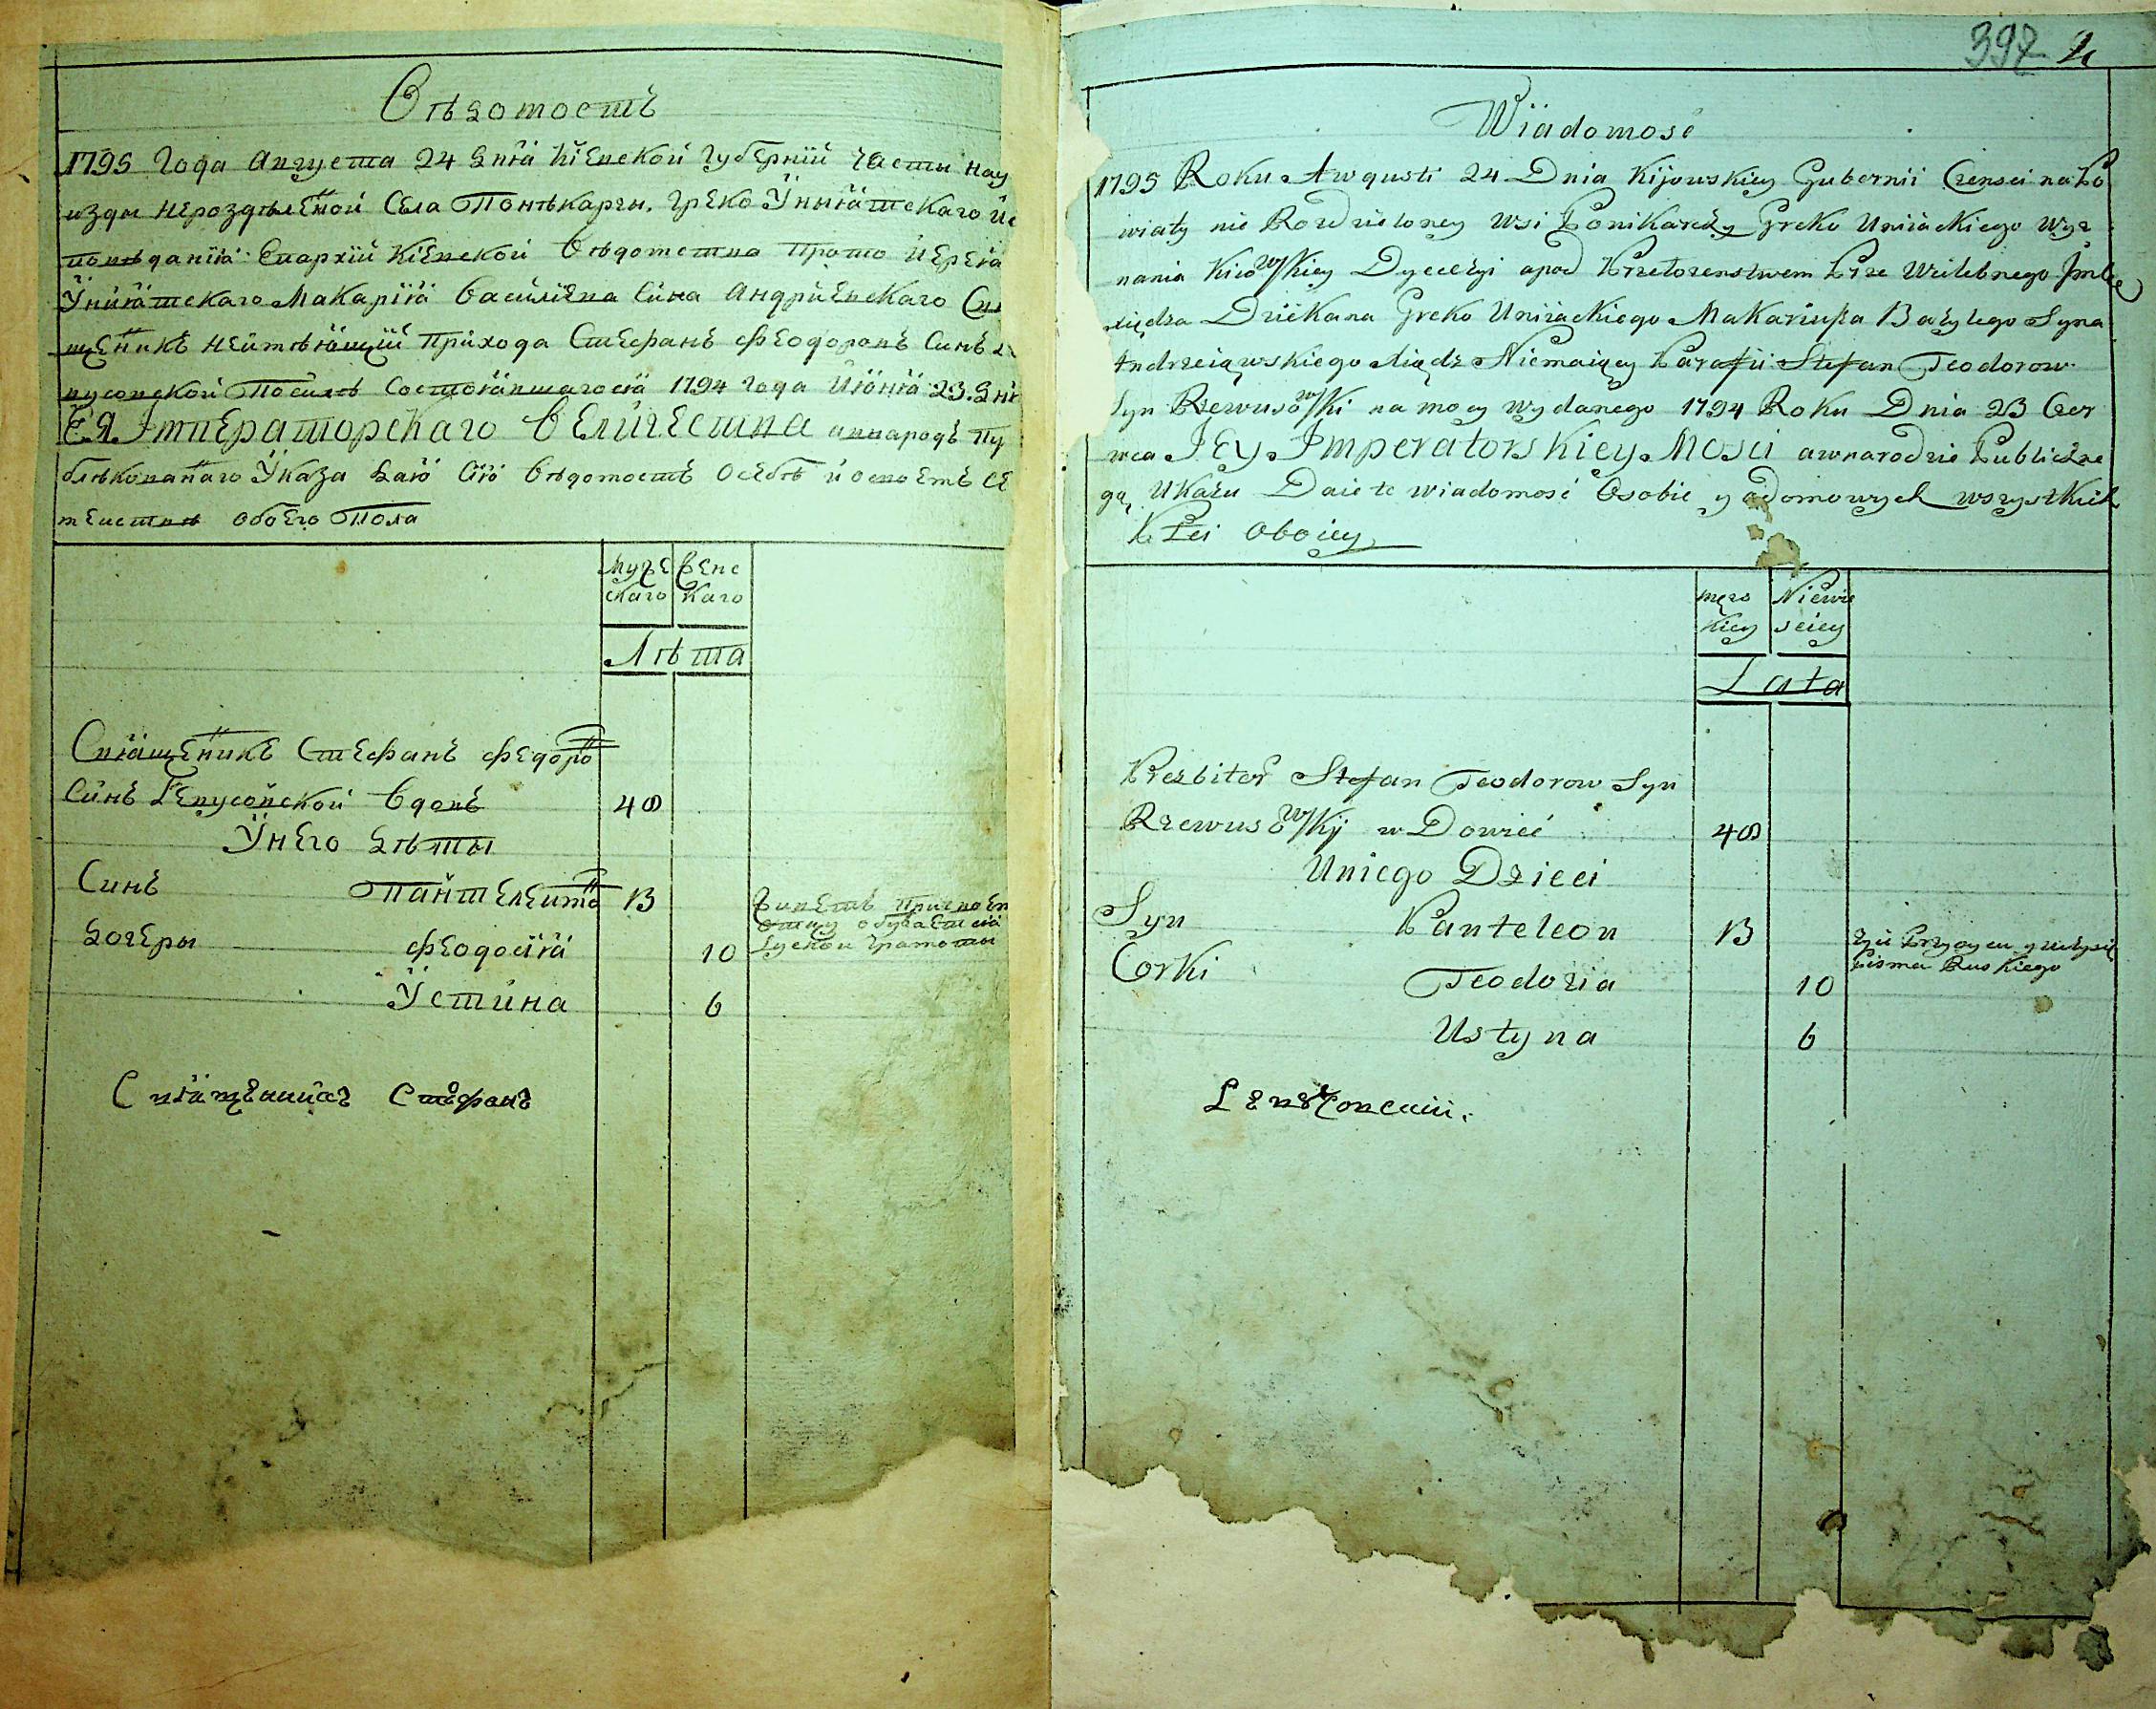 Вѣдомость
1795 Года Августа 24 Дня Кіевской Губерніи Части на у
изды нероздѣленой Села Понѣкарчы, Греко Уніятскаго Ис
повѣданія Епархіи Кіевской Вѣдомства Прото Иерея
Уніятскаго Макарія Василіева Сина Андріевскаго Свя
щеникъ неимѣющій Прихода Стефанъ Феодоровъ Синъ
вусовской Посилѣ Состоявшагося 1794 Года Июня 23. Дня
ЕЯ Императорскаго Величества а внародъ Пу
блѣкованаго Указа Даю Сию Вѣдомость О себѣ и о своемъ Се
мействѣ обоего Пола
Муже Женс
скаго каго
Лѣта
Священикъ Стефанъ Федоров
Синъ Левусовской вдовъ 48
У него Дѣты
Синъ Пантелеимо 13 Живетъ При своем
Отцу обучается
Руской Грамоты
Дочеры Феодосія 10
Устина 6
Священникъ Стефанъ
397 2
Wiadomość
1795 Roku Awgusti 24 Dnia Kijowskiey Gubernii Czensci na Po
wiaty nie Rozdzieloney Wsi Ponikarczy Greko Uniackiego Wyz
nania Kiiowskiey Dyecezyi apod Przełozenstwem Prze Wilebnego Jmć
xiędza Dziekana Greko Uniackiego Makariusza Bazylego Syna
Andrzeiawskiego Xiądz Niemaiący Parafii Stefan Teodorow
Syn Rzewusowski na mocy wydanego 1794 Roku Dnia 23 Czer
wca JEy Imperatorskiey Mosci a wnarodzie Publiczne
go Ukazu Daie te wiadomosć Osobie y o domowych wszystkich
Płci oboiey
męzs Niewie
kiey sciey
Lata
Prezbiter Stefan Teodorow Syn
Rzewusowskij w Dowieć 48
U niego Dzieci
Syn Panteleon 13 żyie Przy oycu y uczy się
Pisma Ruskiego
Corki Teodozia 10
Ustyna 6
Левусовскии.